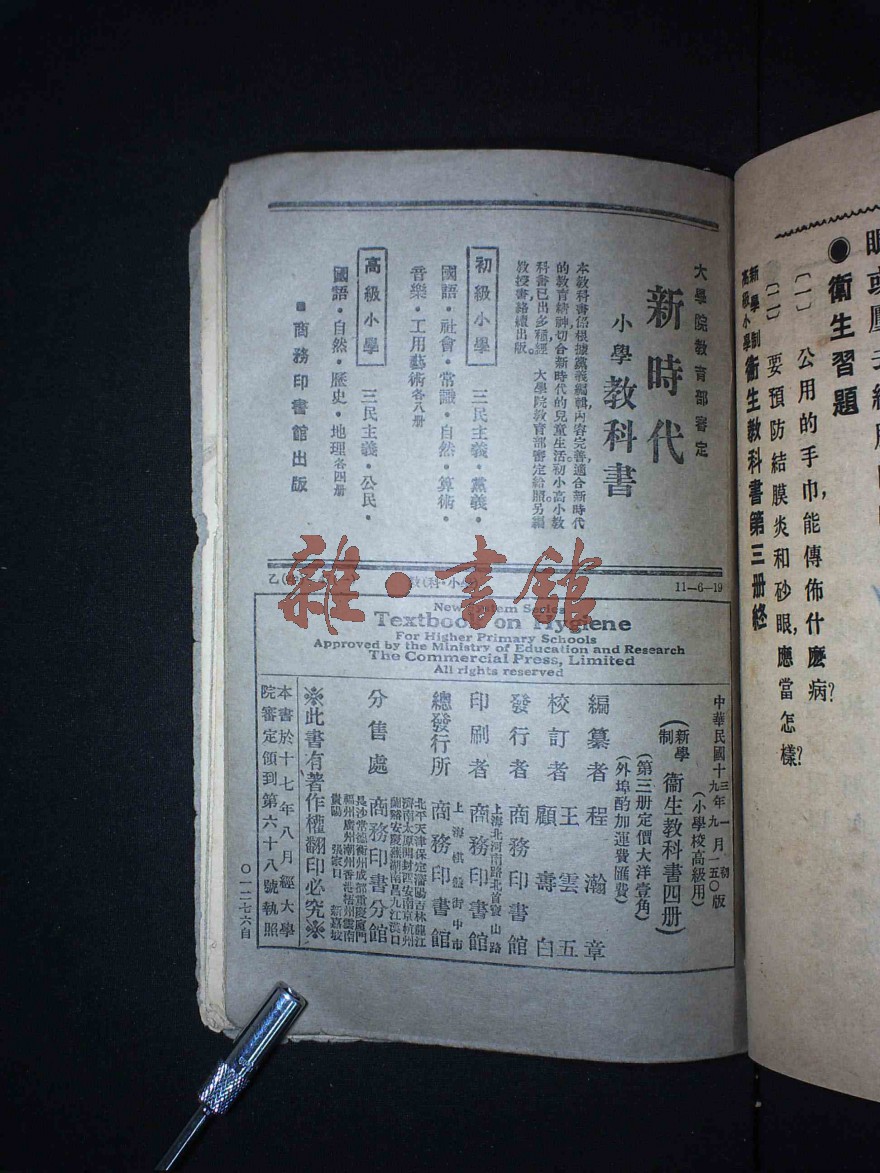 眼或壓去
●衛生習題
〔一〕公用的手巾,能傳佈什麽病?
〔二〕要預防結膜炎和砂眼,應當怎樣?
新學制高級小學衛生教科書第三册終
大學院教育部審定
新時代
小學教科書
本教科書係根據黨義編輯,內容完善,適合新時代
的教育精神,切合新時代的兒童生活。初小高小教
科書已出多種,經 大學院教育部審定給照。另編
教授書絡續出版。
初級小學 三民主義・黨義・
國語・社會・常識・自然・算術・
音樂・工用藝術各八册
高級小學 三民主義・公民・
國語・自然・歷史・地理各四册
■商務印書館出版
乙(
教(科・小學)
11—6—19
New System Series
Textbook on Hygiene
For Higher Primary Schools
Approved by the Ministry of Education and Research
The Commercial Press, Limited
All rights reserved
中華民國十三年一月初版
九年九月一五〇版
(小學校高級用)
(新學制)衛生教科書四册)
(第三册定價大洋壹角)
(外埠酌加運費匯費)
編纂者 程瀚章
校訂者 王雲五
顧壽白
發行者 商務印書館
上海北河南路北首寶山路
印刷者 商務印書館
上海棋盤街中市
總發行所 商務印書館
北平天津保定瀋陽吉林龍江
濟南太原開封西安南京杭州
蘭谿安慶蕪湖南昌九江漢口
分售處 商務印書分館
長沙常德衡州成都重慶廈門
福州廣州潮州香港梧州雲南
貴陽 張家口 新嘉坡
※此書有著作權翻印必究※
本書於十七年八月經大學
院審定領到第六十八號執照
〇一二七六自
雜・書館